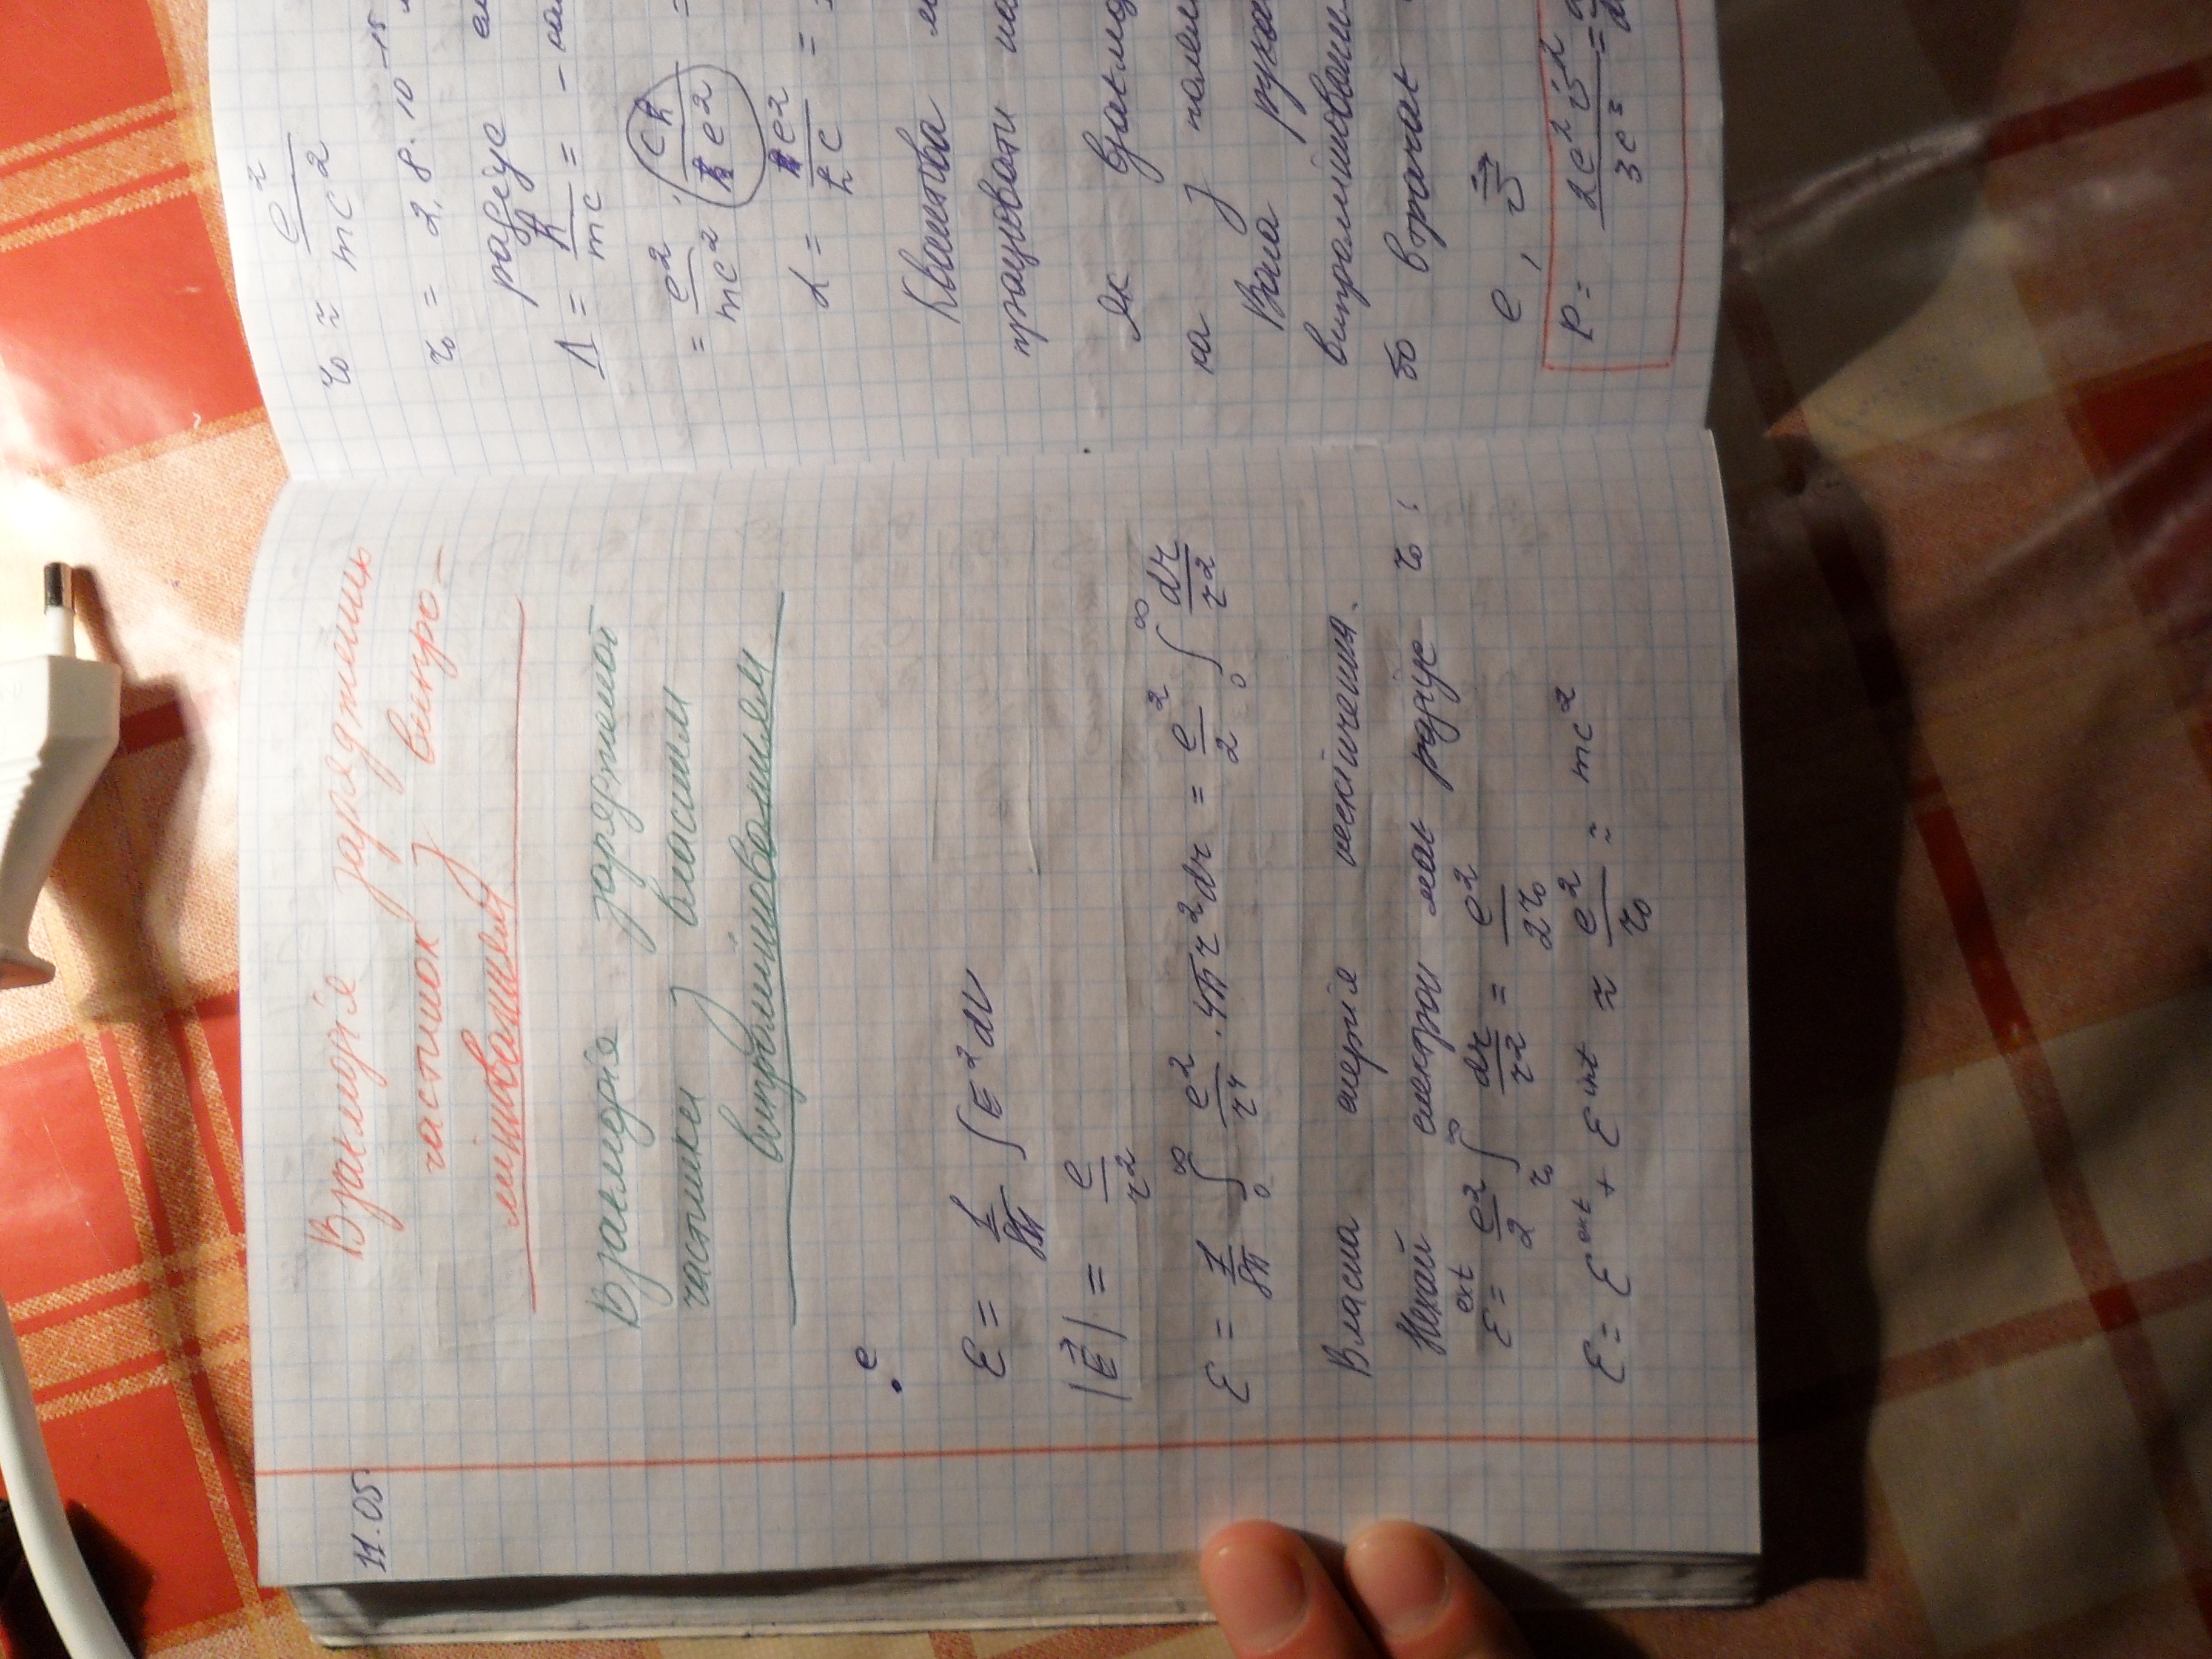 11.05
Взаємодія заряджених
частинок з випро-
мінюванням
Взаємодія зарядженої
частинки з власним
випромінюванням
e
ℰ = 1/8π ∫ E² dV
|E⃗| = e/r²
ℰ = 1/8π ∫₀^∞ e²/r⁴ · 4πr² dr = e²/2 ∫₀^∞ dr/r²
Власна енергія нескінченна.
Нехай електрон має радіус r₀ ;
ℰ^ext = e²/2 ∫_{r₀}^∞ dr/r² = e²/2r₀
ℰ = ℰ^ext + ℰ^int ≈ e²/r₀ ~ mc²
r₀ ~ e²/mc²
r₀ = 2,8·10⁻¹⁵
радіус
Λ = ħ/mc = –
= e²/mc² · (cħ/e²) =
α = e²/ħc =
Квантова
працювати
Як взаємод
на з
Вона руха
випромінювань
бо втрачає
e , v⃗
P = 2e² v̇²/3c³ =